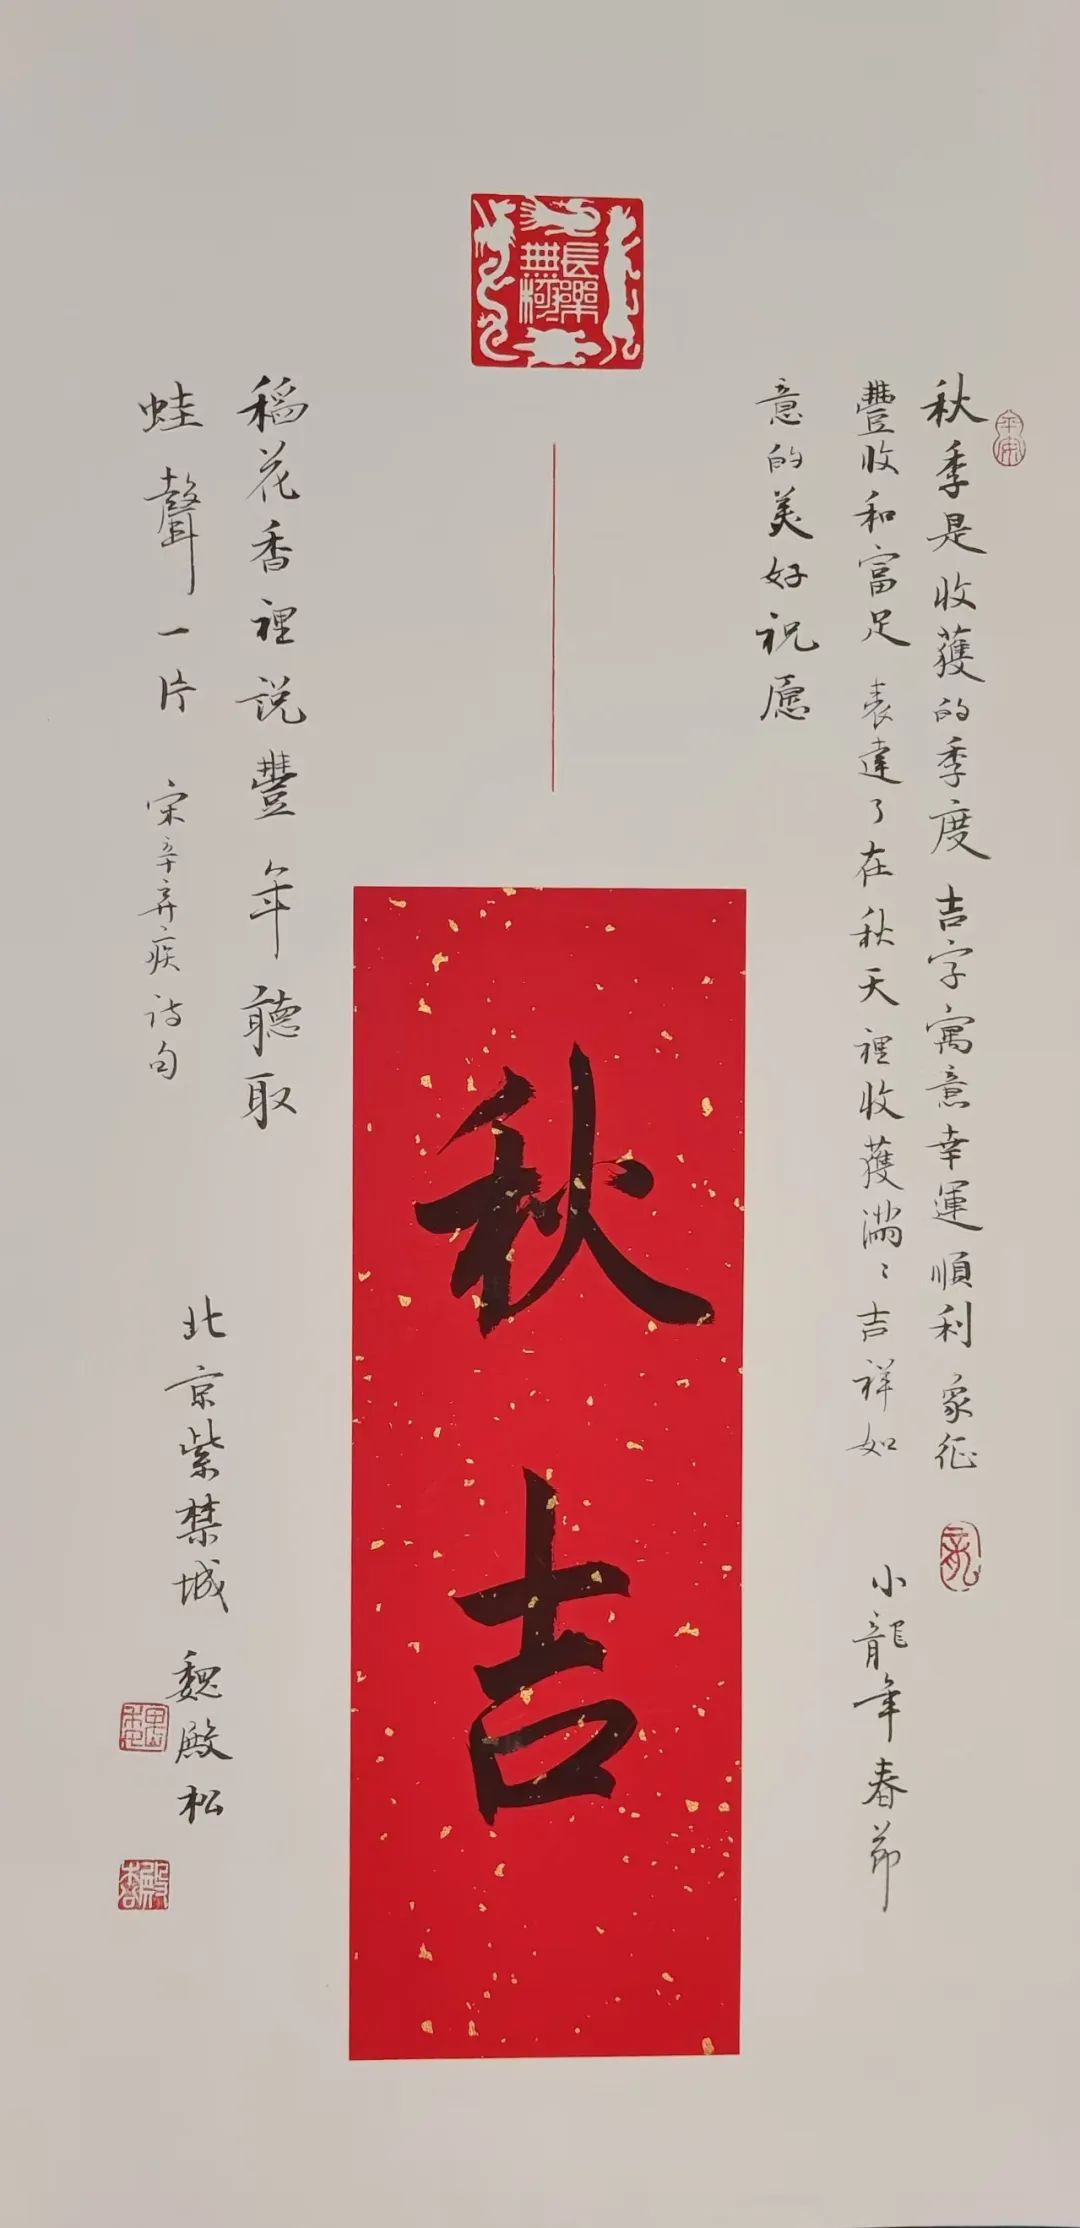 長樂
無極
平安
秋季是收獲的季度 吉字寓意幸運順利 象征
豐收和富足 表達了在秋天裡收獲滿〻吉祥如
意的美好祝愿
小龍年春節
秋吉
稻花香裡説豐年聽取
蛙聲一片 宋辛弃疾诗句
北京紫禁城 魏殿松